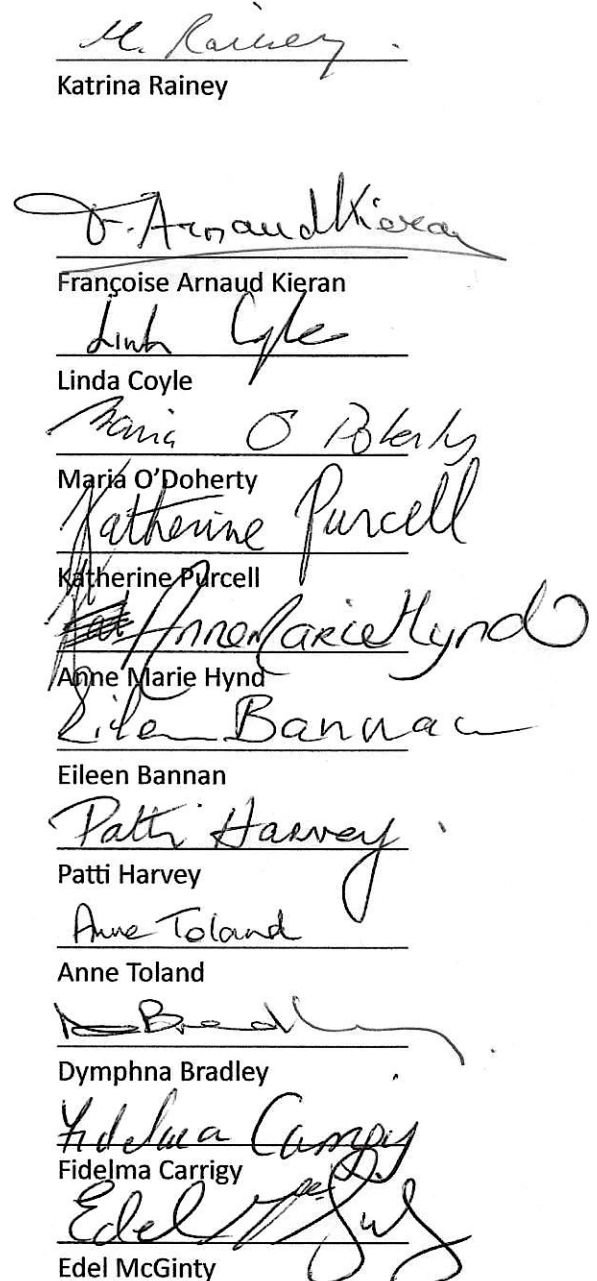 K. Rainey
Katrina Rainey
F. Arnaud Kieran
Françoise Arnaud Kieran
Linda Coyle
Linda Coyle
Maria O'Doherty
Maria O'Doherty
Katherine Purcell
Katherine Purcell
Anne Marie Hynd
Anne Marie Hynd
Eileen Bannan
Eileen Bannan
Patti Harvey
Patti Harvey
Anne Toland
Anne Toland
Bradley
Dymphna Bradley
Fidelma Carrigy
Fidelma Carrigy
Edel McGinty
Edel McGinty